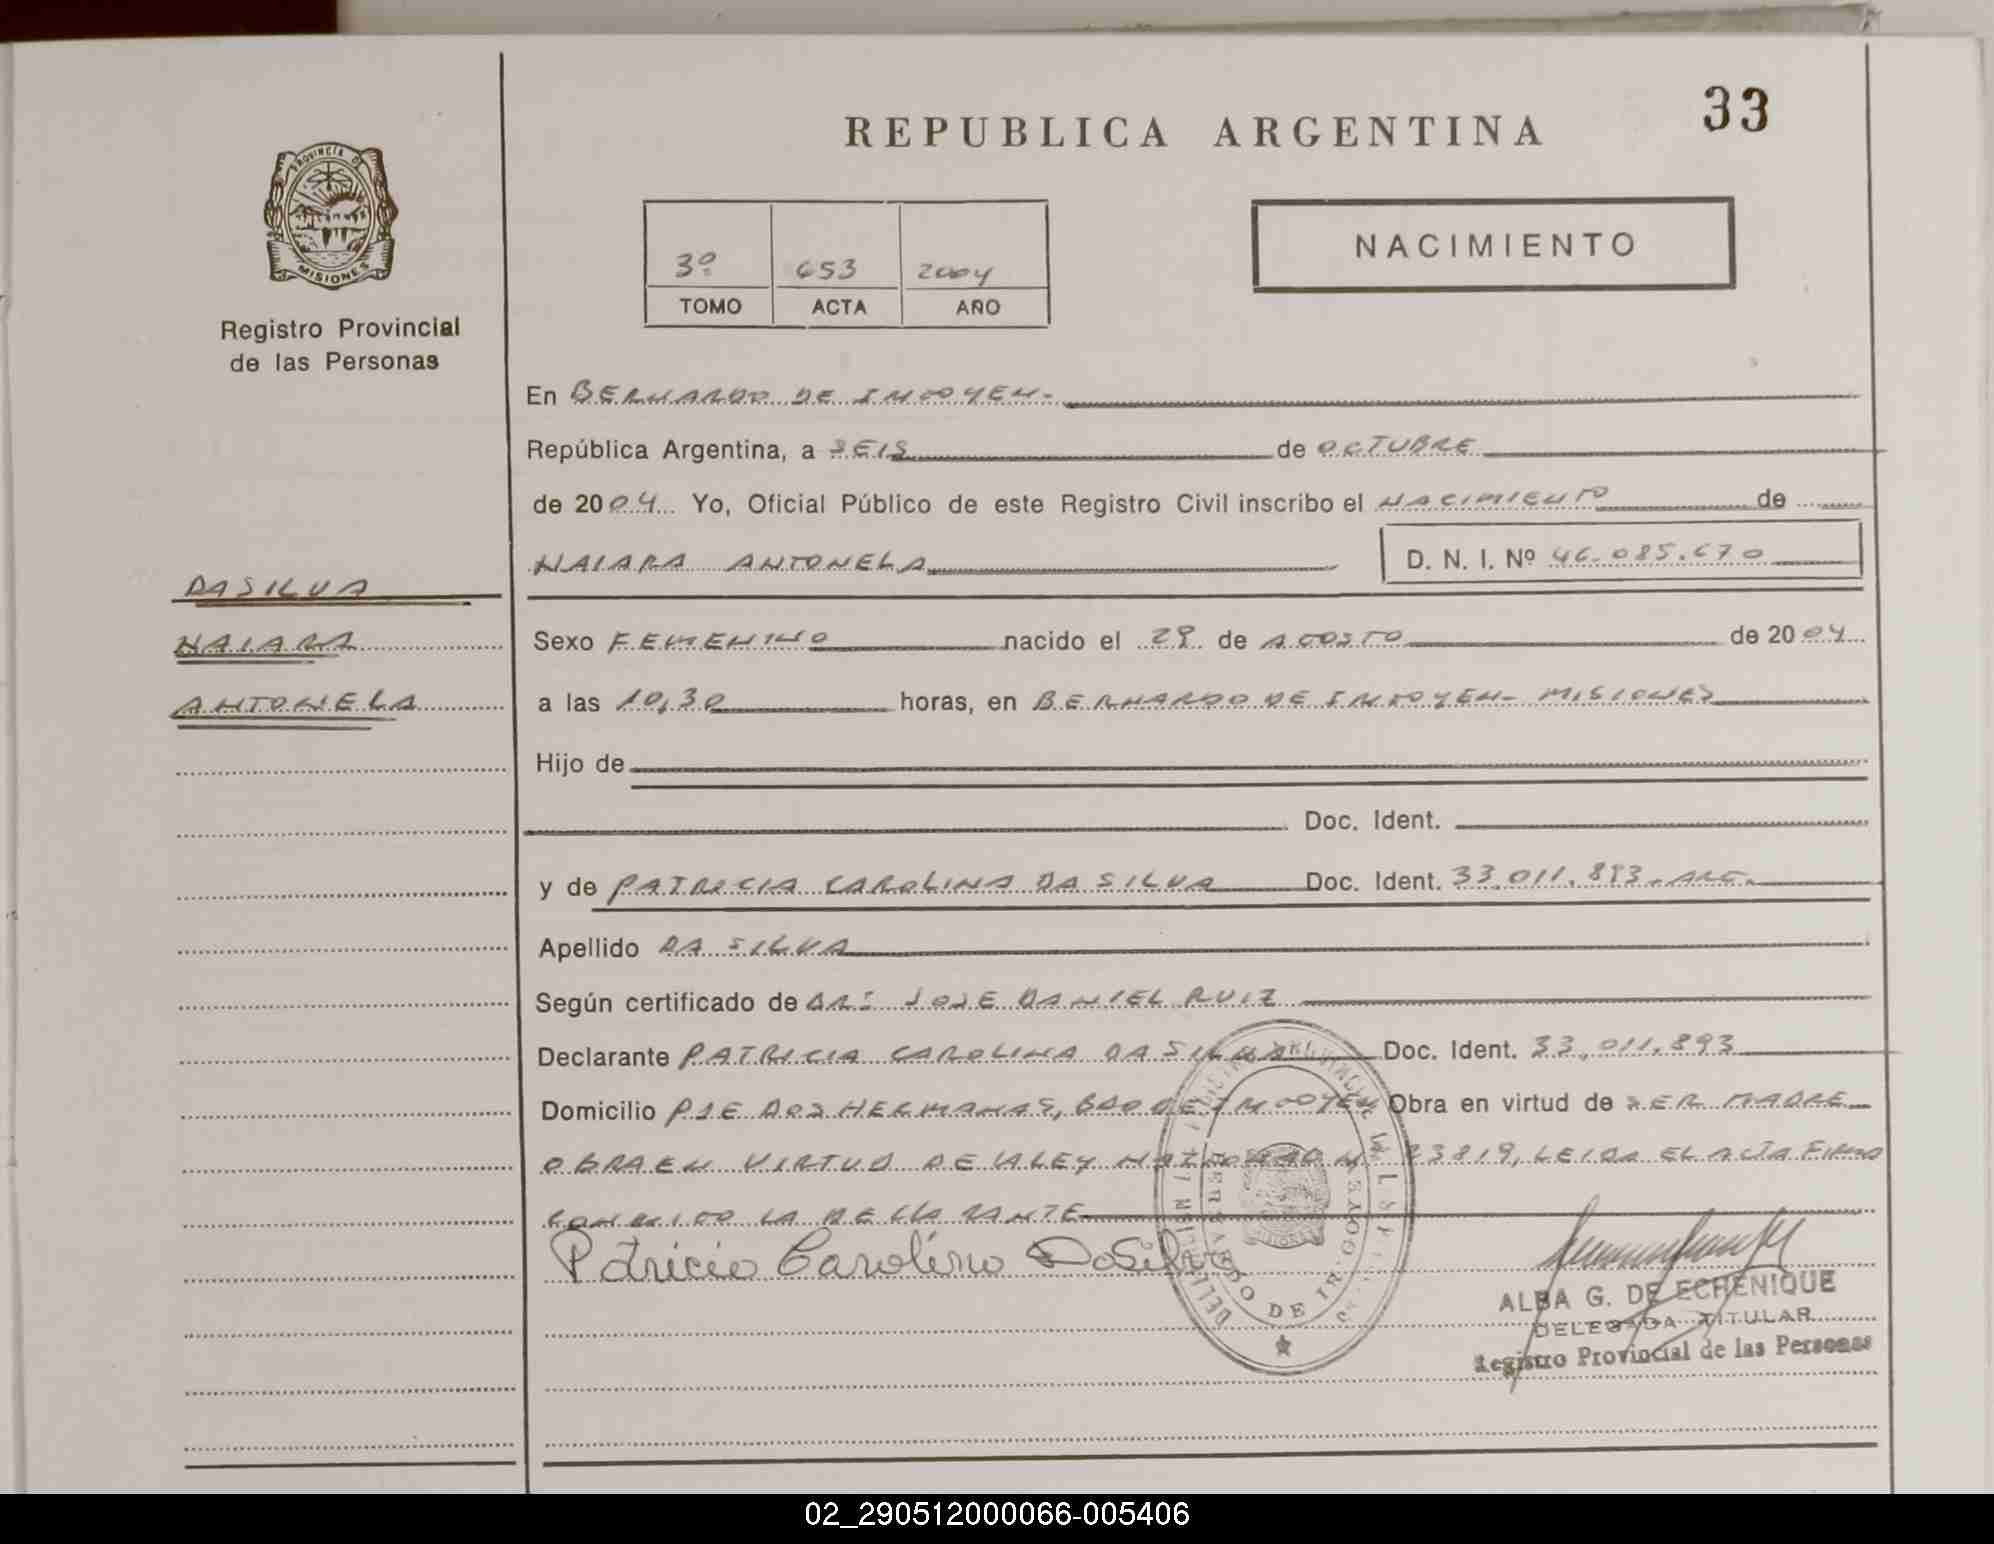 33
REPUBLICA ARGENTINA
PROVINCIA DE
MISIONES
Registro Provincial
de las Personas
3º 653 2004
TOMO ACTA AÑO
NACIMIENTO
En BERNARDO DE IRIGOYEN-
República Argentina, a SEIS de OCTUBRE
de 2004 Yo, Oficial Público de este Registro Civil inscribo el NACIMIENTO de
NAIARA ANTONELA D. N. I. Nº 46.085.670
DASILVA
NAIARA
ANTONELA
Sexo FEMENINO nacido el 29 de AGOSTO de 2004
a las 10,30 horas, en BERNARDO DE IRIGOYEN- MISIONES
Hijo de
Doc. Ident.
y de PATRICIA CAROLINA DA SILVA Doc. Ident. 33.011.893. ARG.
Apellido DA SILVA
Según certificado de DR: JOSE DANIEL RUIZ
Declarante PATRICIA CAROLINA DA SILVA Doc. Ident. 33.011.893
Domicilio PJE DOS HERMANAS, BDO DE IRIGOYEN Obra en virtud de SER MADRE
OBRA EN VIRTUD DE LA LEY NACIONAL Nº 23819, LEIDA EL ACTA FIRMA
CONMIGO LA DECLARANTE
Patricia Carolina DaSilva
BERNARDO DE IRIGOYEN
MISIONES
ALBA G. DE ECHENIQUE
DELEGADA TITULAR
Registro Provincial de las Personas
02_290512000066-005406